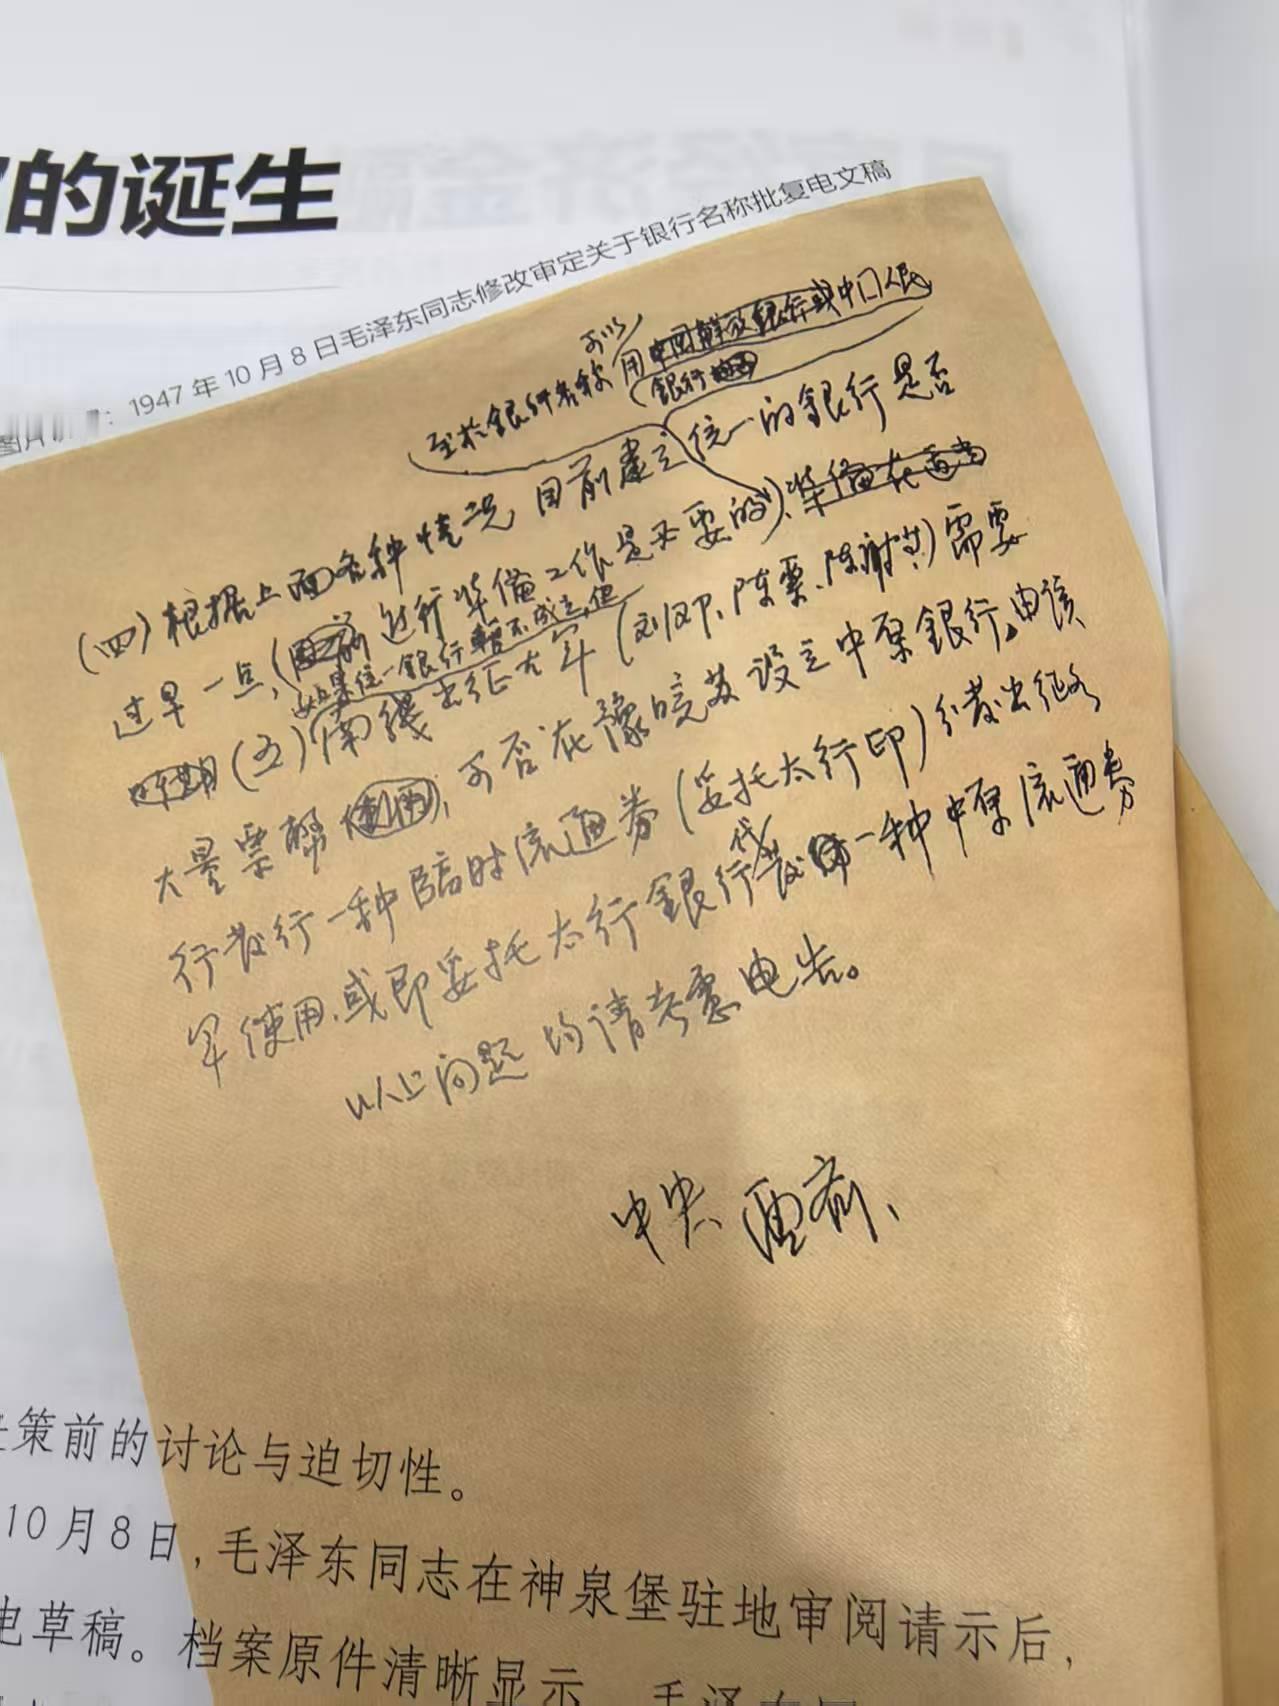 的诞生
1947年10月8日毛泽东同志修改审定关于银行名称批复电文稿
至於銀行名称可以用中国解放銀行或中国人民
銀行
(四)根据上面各种情况目前建立统一的銀行是否
过早一点,(目前进行准备工作是必要的)、准备在适当
如果统一銀行暂不成立,但
(五)南线出征大军(刘邓、陈粟、陈谢等)需要
大量票幣,可否在豫皖苏设立中原銀行,由该
行发行一种臨时流通券(委托太行印)分发出征各
军使用,或即委托太行銀行代发一种中原流通券
以上问题均请考虑电告。
中央 酉
策前的讨论与迫切性。
10月8日,毛泽东同志在神泉堡驻地审阅请示后,
电草稿。档案原件清晰显示